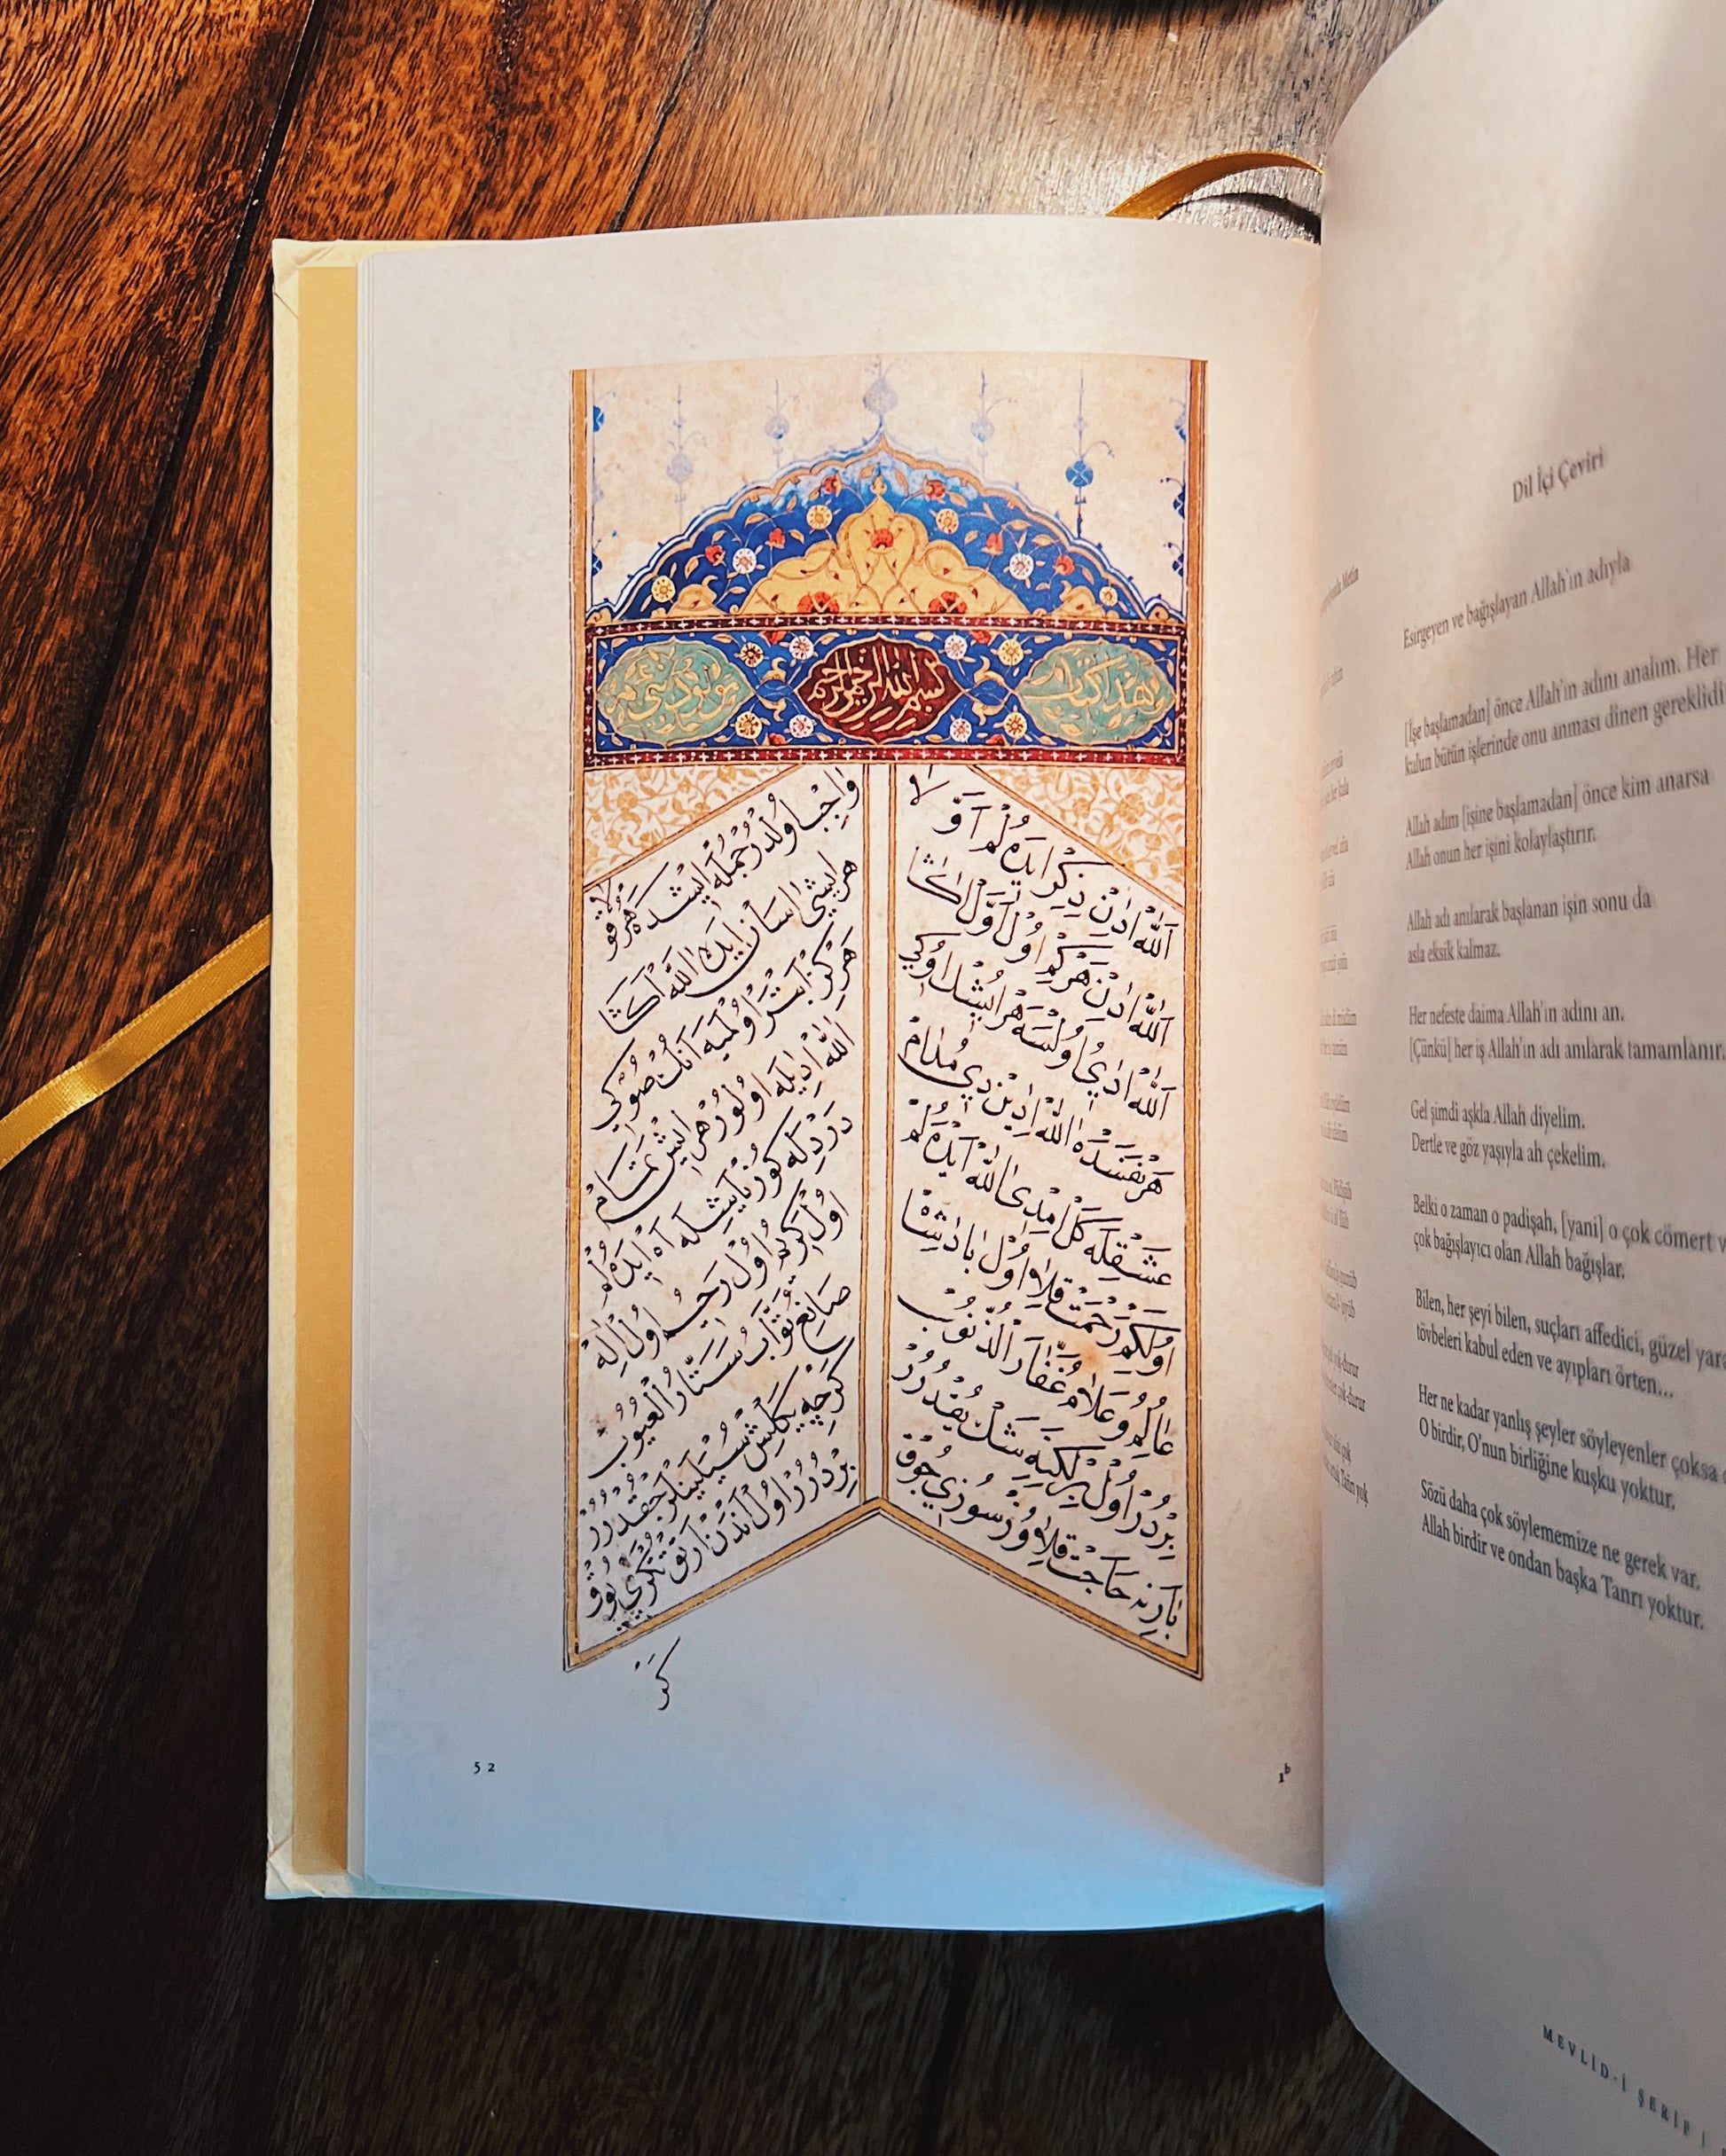 هذا كتاب
بسم الله الرحمن الرحيم
الله ادن ذكر ايده لم اولا
واجب اولدر جمله ايشده هر قولا
الله ادن هركم اول اول اكا
هر ايشى اسان ايده الله اكا
الله ادى اولسه هر ايشك اوكى
هركز ابتر اولميه انك صوكى
هر نفسده الله ادين دى مدام
الله اديله اولور هر ايش تمام
عشقيله كل امدى الله ايده لم
درديله كوز ياشيله اه ايده لم
اولكه رحمت قلا اول پادشاه
اول كريم اول رحيم اول اله
عالم و علام غفار الذنوب
صانع تواب ستار العيوب
بردر اول برلكنه شك يقدرر
كرچه يكلش سيلينلر چقدرر
حاجت قلاوز سوزى چوق
بردرر اول اندن ارتق تكرى يوق
52
1b
Dil İçi Çeviri
Esirgeyen ve bağışlayan Allah'ın adıyla
[İşe başlamadan] önce Allah'ın adını analım. Her
kulun bütün işlerinde onu anması dinen
Allah adını [işine başlamadan] önce kim anarsa
Allah onun her işini kolaylaştırır.
Allah adı anılarak başlanan işin sonu da
asla eksik kalmaz.
Her nefeste daima Allah'ın adını an.
[Çünkü] her iş Allah'ın adı anılarak tamamlanır.
Gel şimdi aşkla Allah diyelim.
Dertle ve göz yaşıyla ah çekelim.
Belki o zaman o padişah, [yani] o çok cömert
çok bağışlayıcı olan Allah bağışlar.
Bilen, her şeyi bilen, suçları affedici, güzel
tövbeleri kabul eden ve ayıpları örten...
Her ne kadar yanlış şeyler söyleyenler çoksa
O birdir, O'nun birliğine kuşku yoktur.
Sözü daha çok söylememize ne gerek var.
Allah birdir ve ondan başka Tanrı yoktur.
MEVLİD-İ ŞERİF